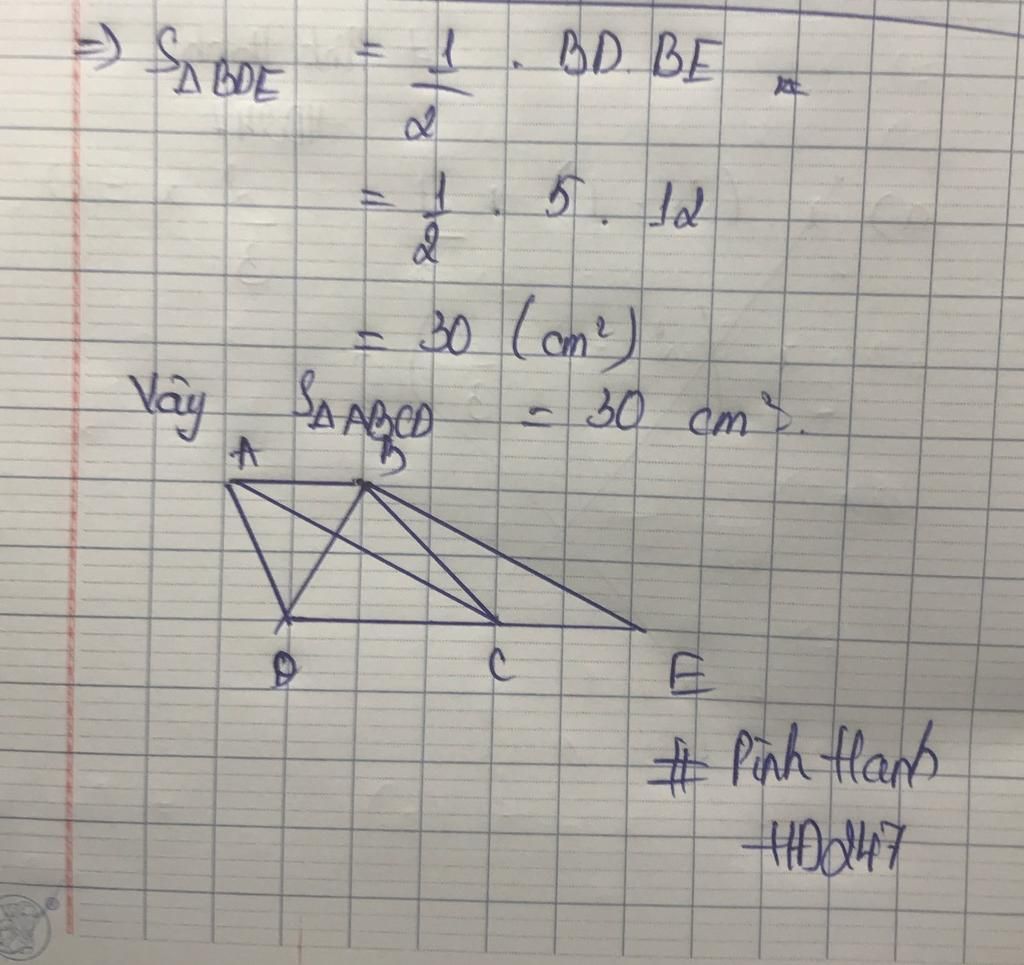 => S△BDE = 1/2 . BD. BE
= 1/2 . 5 . 12
= 30 (cm²)
Vậy S△ABCD = 30 cm².
A B
D C E
# Hanh
HD247